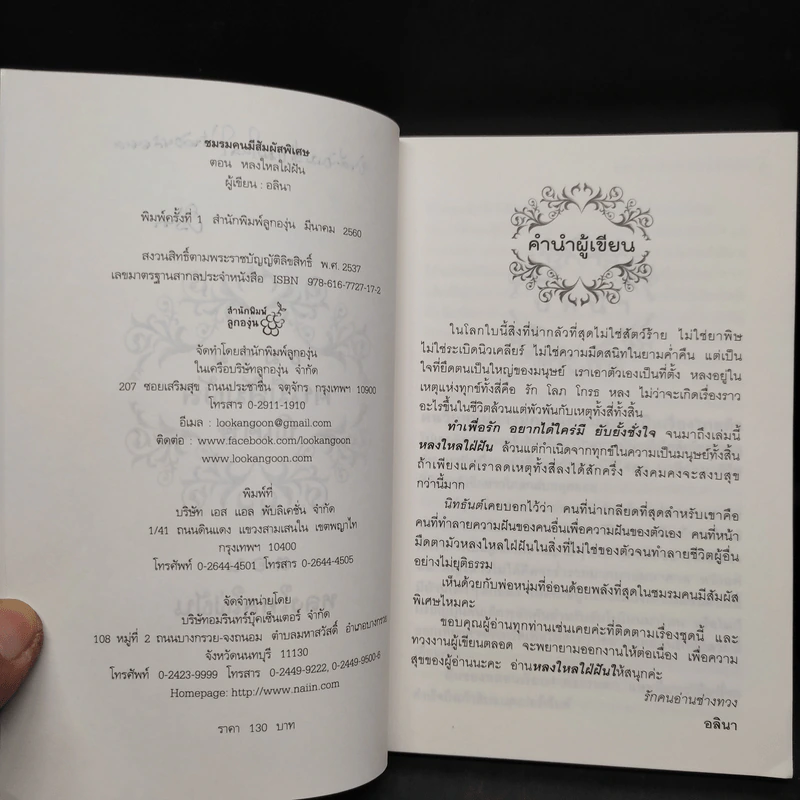 ชมรมคนมีสัมผัสพิเศษ
ตอน หลงใหลใฝ่ฝัน
ผู้เขียน : อลินา
พิมพ์ครั้งที่ 1 สำนักพิมพ์ลูกองุ่น มีนาคม 2560
สงวนสิทธิ์ตามพระราชบัญญัติลิขสิทธิ์ พ.ศ. 2537
เลขมาตรฐานสากลประจำหนังสือ ISBN 978-616-7727-17-2
สำนักพิมพ์
ลูกองุ่น
จัดทำโดยสำนักพิมพ์ลูกองุ่น
ในเครือบริษัทลูกองุ่น จำกัด
207 ซอยเสริมสุข ถนนประชาชื่น จตุจักร กรุงเทพฯ 10900
โทรสาร 0-2911-1910
อีเมล : lookangoon@gmail.com
ติดต่อ : www.facebook.com/lookangoon
www.lookangoon.com
พิมพ์ที่
บริษัท เอส แอล พับลิเคชั่น จำกัด
1/41 ถนนดินแดง แขวงสามเสนใน เขตพญาไท
กรุงเทพฯ 10400
โทรศัพท์ 0-2644-4501 โทรสาร 0-2644-4505
จัดจำหน่ายโดย
บริษัทอมรินทร์บุ๊คเซ็นเตอร์ จำกัด
108 หมู่ที่ 2 ถนนบางกรวย-จงถนอม ตำบลมหาสวัสดิ์ อำเภอบางกรวย
จังหวัดนนทบุรี 11130
โทรศัพท์ 0-2423-9999 โทรสาร 0-2449-9222, 0-2449-9500-6
Homepage: http://www.naiin.com
ราคา 130 บาท
คำนำผู้เขียน
ในโลกใบนี้สิ่งที่น่ากลัวที่สุดไม่ใช่สัตว์ร้าย ไม่ใช่ยาพิษ
ไม่ใช่ระเบิดนิวเคลียร์ ไม่ใช่ความมืดสนิทในยามค่ำคืน แต่เป็น
ใจที่ยึดตนเป็นใหญ่ของมนุษย์ เราเอาตัวเองเป็นที่ตั้ง หลงอยู่ใน
เหตุแห่งทุกข์ทั้งสี่คือ รัก โลภ โกรธ หลง ไม่ว่าจะเกิดเรื่องราว
อะไรขึ้นในชีวิตล้วนแต่พัวพันกับเหตุทั้งสี่ทั้งสิ้น
ทำเพื่อรัก อยากได้ใคร่มี ยับยั้งชั่งใจ จนมาถึงเล่มนี้
หลงใหลใฝ่ฝัน ล้วนแต่กำเนิดจากทุกข์ในความเป็นมนุษย์ทั้งสิ้น
ถ้าเพียงแค่เราลดเหตุทั้งสี่ลงได้สักครึ่ง สังคมคงจะสงบสุข
กว่านี้มาก
นิทธันต์เคยบอกไว้ว่า คนที่น่าเกลียดที่สุดสำหรับเขาคือ
คนที่ทำลายความฝันของคนอื่นเพื่อความฝันของตัวเอง คนที่หน้า
มืดตามัวหลงใหลใฝ่ฝันในสิ่งที่ไม่ใช่ของตัวจนทำลายชีวิตผู้อื่น
อย่างไม่ยุติธรรม
เห็นด้วยกับพ่อหนุ่มที่อ่อนด้อยพลังที่สุดในชมรมคนมีสัมผัส
พิเศษไหมคะ
ขอบคุณผู้อ่านทุกท่านเช่นเคยค่ะที่ติดตามเรื่องชุดนี้ และ
ทวงงานผู้เขียนตลอด จะพยายามออกงานให้ต่อเนื่อง เพื่อความ
สุขของผู้อ่านนะคะ อ่านหลงใหลใฝ่ฝันให้สนุกค่ะ
รักคนอ่านช่างทวง
อลินา